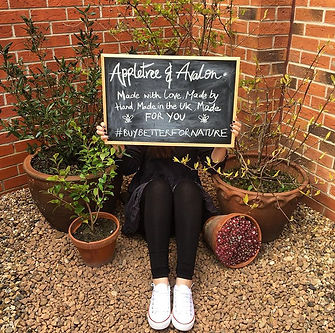 Appletree & Avalon.
Made with Love, Made by
Hand, Made in the Uk, Made
FOR YOU
#BUYBETTERFORNATURE